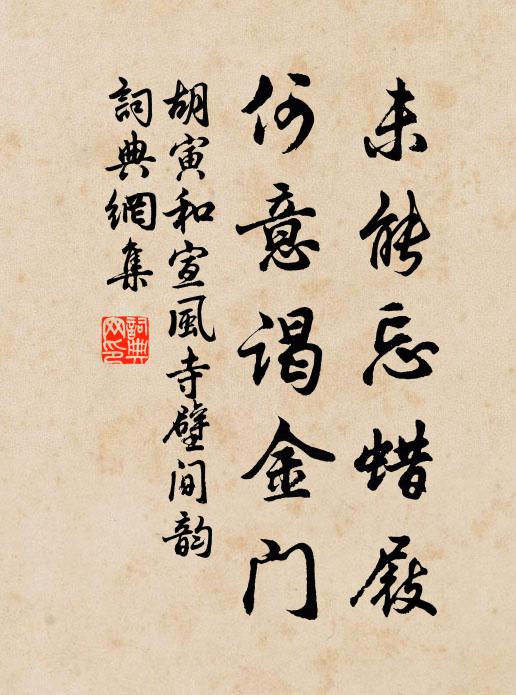 未能忘蜡屐
何意谒金门
胡寅和宣風寺壁间韵
詞典網集
詞典網印